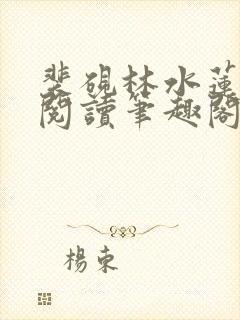 裴硯林水蓮
閱讀筆趣閣
楊束